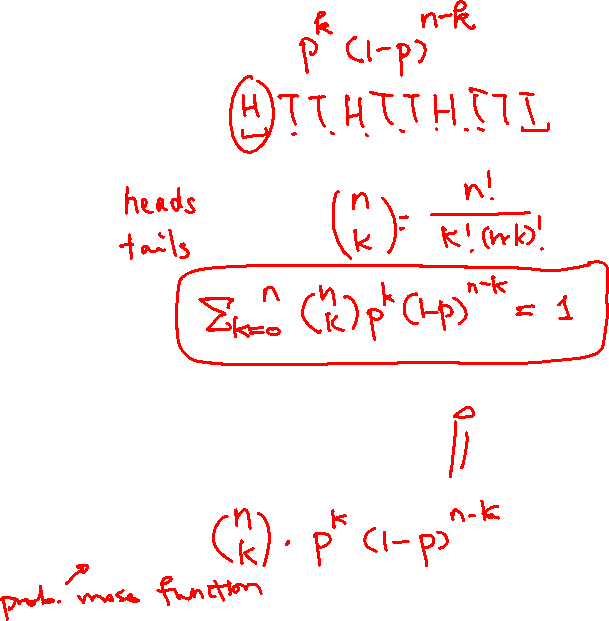 p^k (1-p)^{n-k}
H T T H T T H T T T
heads
tails
\binom{n}{k} = \frac{n!}{k!(n-k)!}
\sum_{k=0}^{n} \binom{n}{k} p^k (1-p)^{n-k} = 1
\binom{n}{k} \cdot p^k (1-p)^{n-k}
prob. mass function